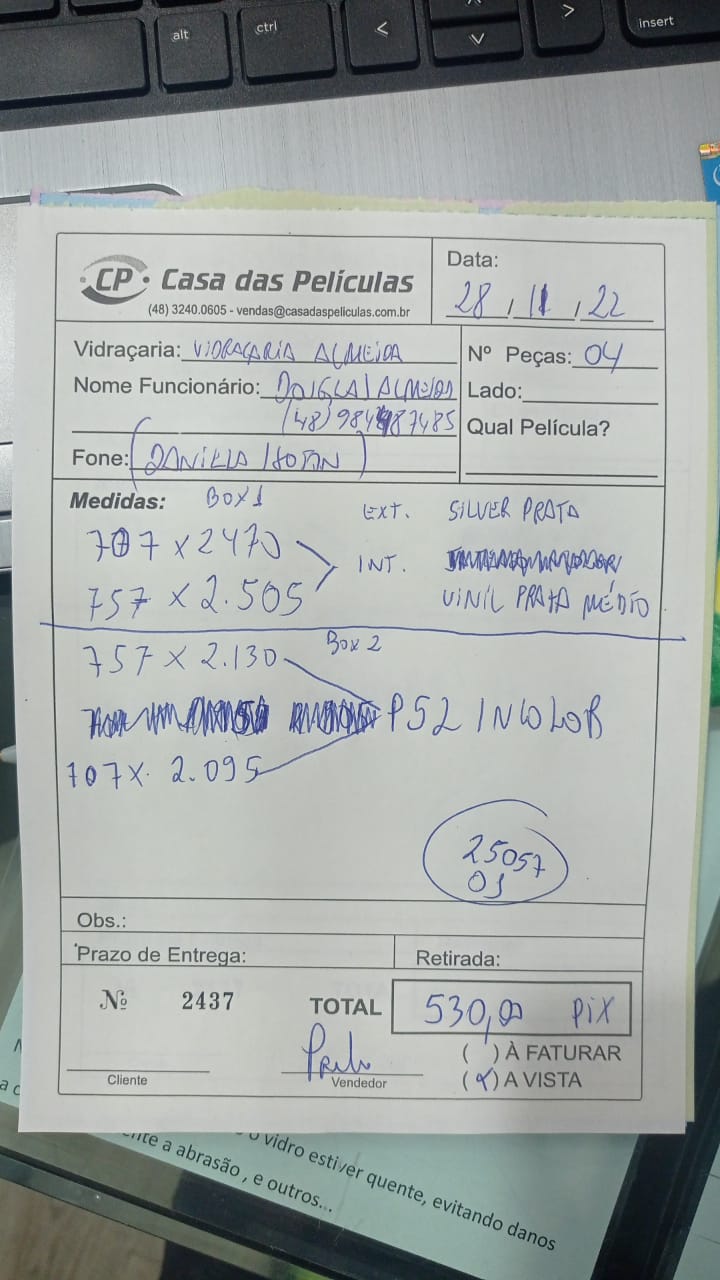 alt
ctrl
<
^
v
>
insert
CP Casa das Películas
(48) 3240.0605 - vendas@casadaspeliculas.com.br
Data:
28 / 11 / 22
Vidraçaria: VIDRAÇARIA ALMEIDA
Nº Peças: 04
Nome Funcionário: DOUGLAS ALMEIDA
Lado:
(48)
Qual Película?
Fone: (DANIELA )
Medidas: BOX 1
EXT. SILVER PRATA
707 x 2470
INT.
757 x 2.505
VINIL PRATA MÉDIO
BOX 2
757 x 2.130
P52 INCOLOR
707 x. 2.095
25057
01
Obs.:
Prazo de Entrega:
Retirada:
Nº 2437
TOTAL 530,00 PIX
( ) À FATURAR
Cliente
Vendedor
(x) A VISTA
o vidro estiver quente, evitando danos
nte a abrasão , e outros...